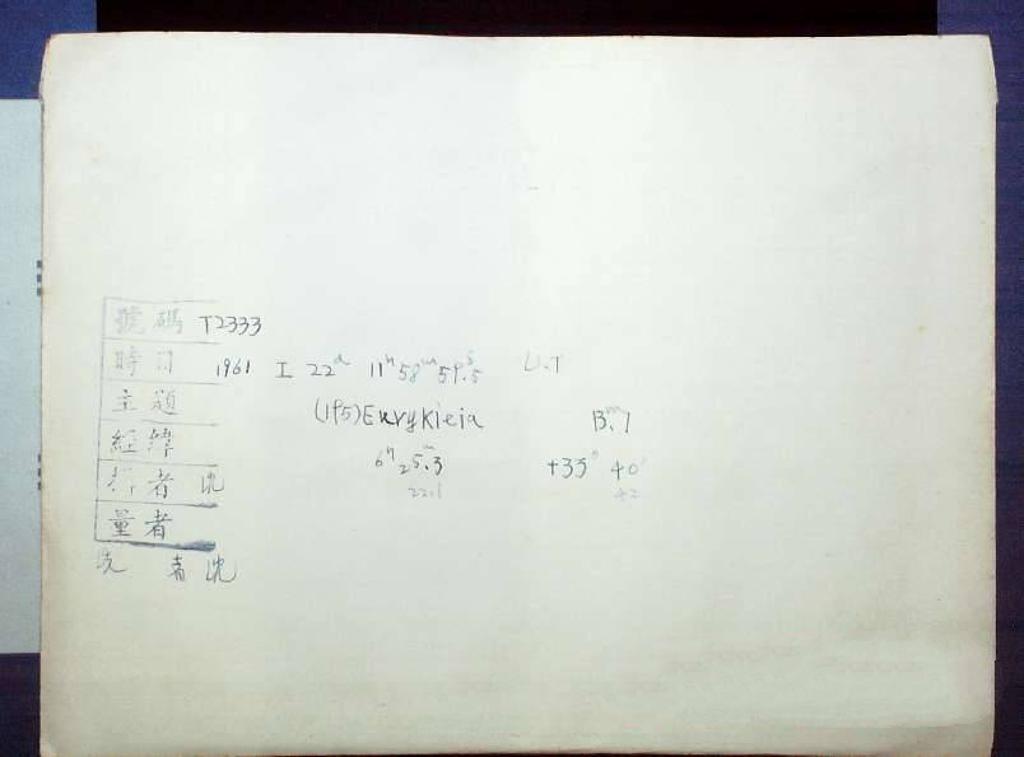 號碼 T2333
時日 1961 I 22ᵈ 11ʰ58ᵐ59.ˢ5 U.T
主題 (195)Eurykleia 13.ᵐ1
經緯 6ʰ25.ᵐ3 +33° 40′
22.1 42
者 沈
量者
洗者 沈